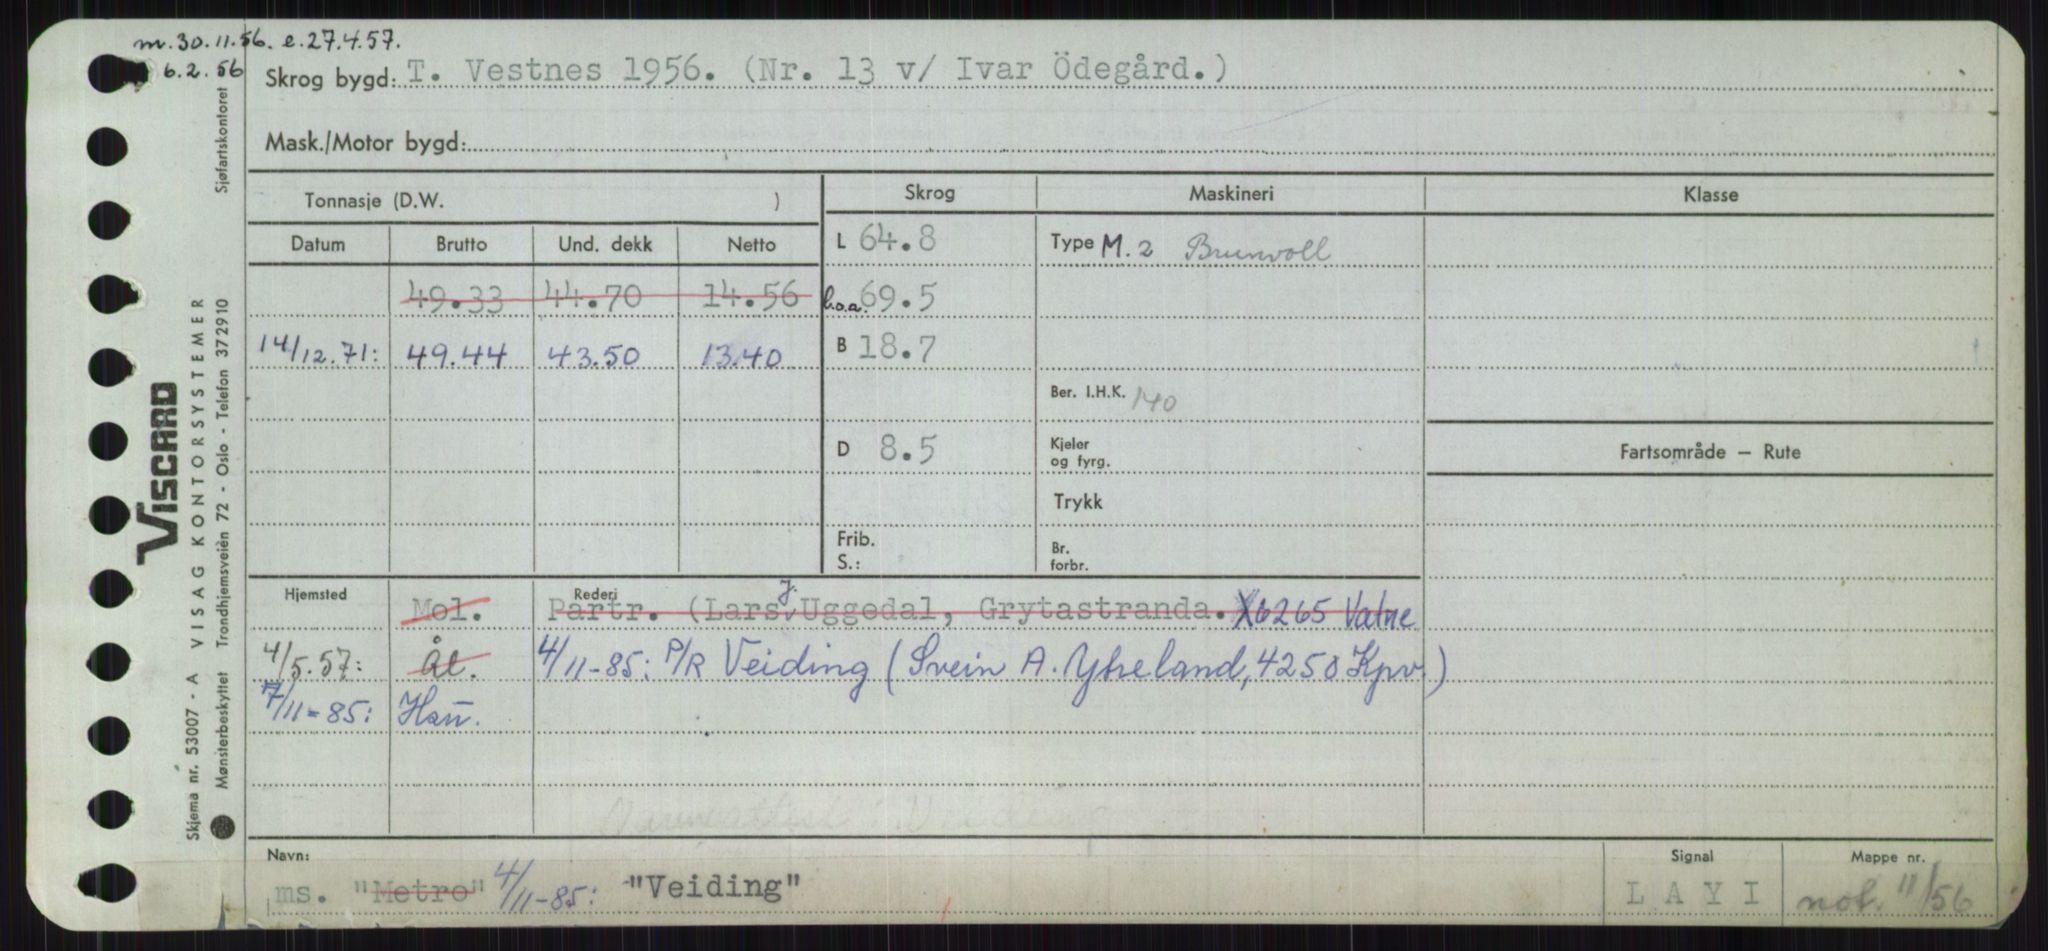 m. 30.11.56. e. 27.4.57.
6.2.56
Skrog bygd: T. Vestnes 1956. (Nr. 13 v/ Ivar Ödegård.)
Mask./Motor bygd:
Tonnasje (D.W. )
Skrog
Maskineri
Klasse
Datum Brutto Und. dekk Netto
L 64.8
Type M. 2 Brunvoll
49.33 44.70 14.56
l.o.a. 69.5
14/12.71: 49.44 43.50 13.40
B 18.7
Ber. I.H.K. 140
D 8.5
Kjeler
og fyrg.
Fartsområde – Rute
Trykk
Frib.
S.:
Br.
forbr.
Hjemsted
Rederi
Mol. Partr. (Lars J. Uggedal, Grytastranda. 6265 Vatne
4/5.57: Ål. 4/11-85: P/R Veiding (Svein A. Ytreland, 4250 Kpv.)
7/11-85: Hau.
Navn:
Signal
Mappe nr.
ms. "Metro" 4/11-85: "Veiding"
LAYI
not. 11/56
VISCARD
VISAG KONTORSYSTEMER
Skjema nr. 53007 - A
Mønsterbeskyttet Trondhjemsveien 72 - Oslo - Telefon 372910 Sjøfartskontoret